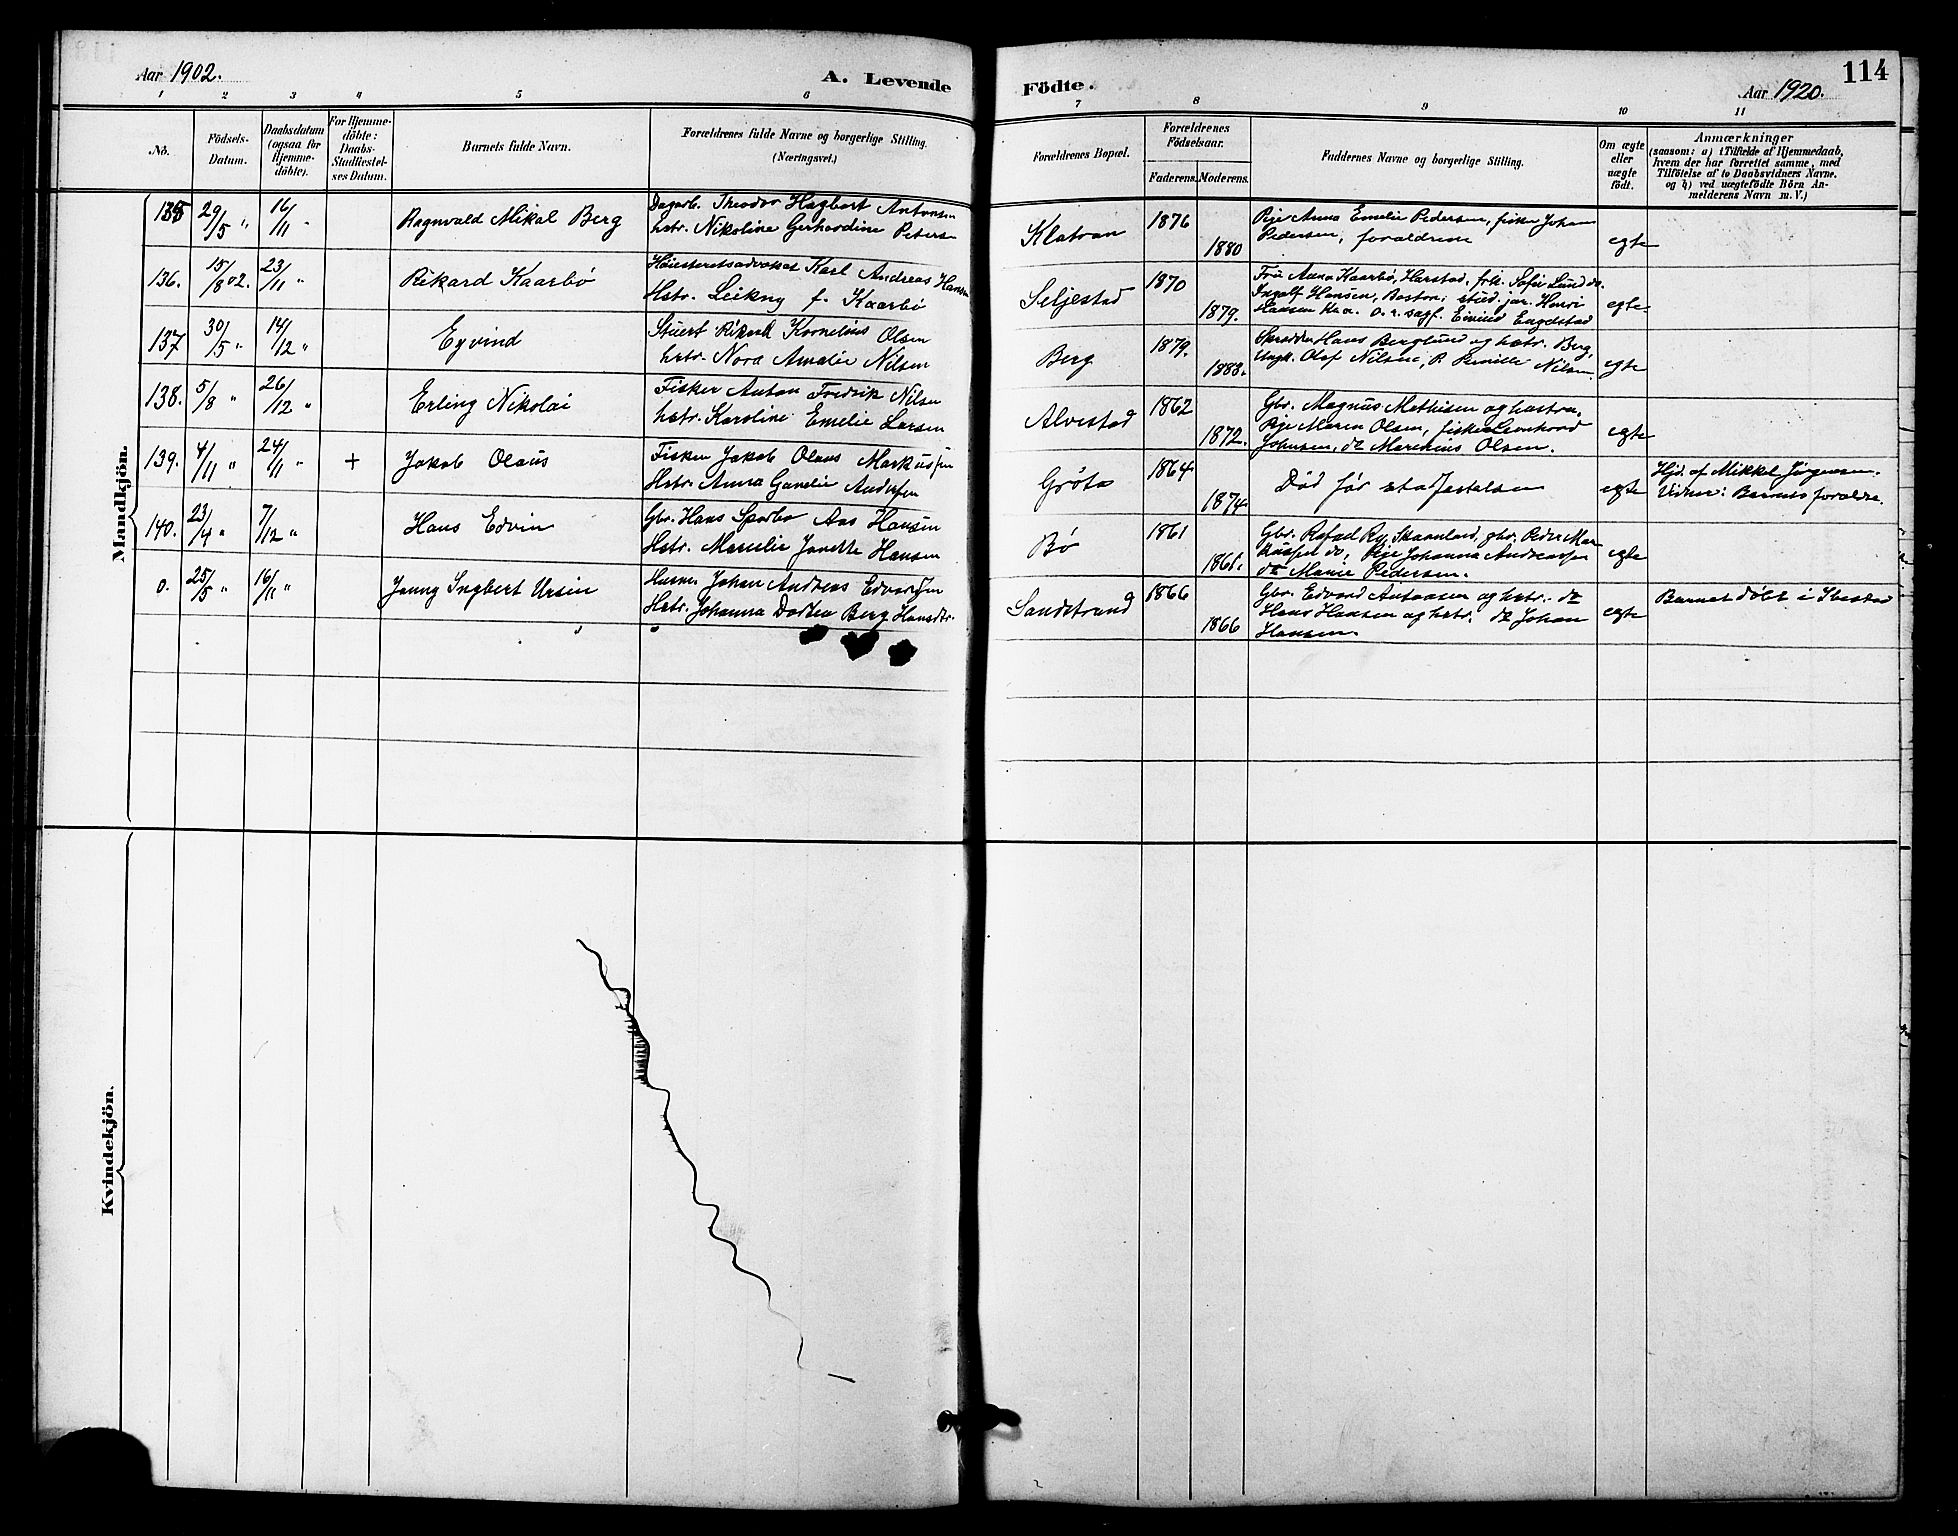 Aar 1902.
A. Levende
Födte.
Aar 1920.
114
1 2 3 4 5 6 7 8 9 10 11
No.
Födsels-
Datum.
Daabsdatum
(ogsaa for
Hjemme-
döbte).
For Hjemme-
döbte:
Daabs-
Stadfæstel-
ses Datum.
Barnets fulde Navn.
Forældrenes fulde Navne og borgerlige Stilling.
(Næringsvei.)
Forældrenes Bopæl.
Forældrenes
Födselsaar.
Faderens.
Moderens.
Faddernes Navne og borgerlige Stilling.
Om ægte
eller
uægte
födt.
Anmærkninger
(saasom: a) i Tilfælde af Hjemmedaab,
hvem der har forrettet samme, med
Tilföielse af to Daabsvidners Navne.
og b) ved uægtefödte Börn An-
melderens Navn m. V.)
Mandkjön.
135 29/5 " 16/11 " Ragnvald Mikal Berg
Dagarb. Theodor Hagbart Antonsen
hstr. Nikoline Gerhardine Peters
Klatran 1876 1880
Pige Anna Emelie Pedersen, fisker Johan
Pedersen, forældrene
egte
136. 15/8 02. 23/11 " Rikard Kaarbø
Høiesteretsadvokat Karl Andreas Hansen
Hstr. Leikny f. Kaarbø
Seljestad 1870 1879.
Fru Anna Kaarbø, Harstad, frk. Sofie Lund do.
Ingolf Hansen, Boston, stud. jur. Henri
Hansen Kr.a. o. r. sagf. Eivind Engelstad
egte
137 30/5 " 14/12 " Eyvind
Stuert Rikard Kornelius Olsen
hstr. Nora Amalie Nilsen
Berg 1879. 1883.
Skrædder Hans Berglund og hstr. Berg,
Ungk. Olaf Nilsen, P. Nilsen.
egte
138. 5/8 " 26/12 " Erling Nikolai
Fisker Anton Fredrik Nilsen
hstr. Karoline Emelie Larsen
Alvestad 1862 1872.
Gbr. Magnus Mathisen og hustru,
Pige Maren Olsen, fisker Leonhard
Johnsen, do Maredius Olsen.
egte
139. 4/11 " 24/11 " + Jakob Olaus
Fisker Jakob Olaus Markussen
Hstr. Anna Andersen
Grøtø 1864 1874
Død før stadfæstelsen
egte
Hjd. af Mikkel Jørgensen.
Vidner: Barnets forældre.
140. 23/4 " 7/12 " Hans Edvin
Gbr. Hans Sparbo Aas Hansen
Hstr. Marselie Janette Hansen
Bø 1861 1861.
Gbr. Rafael Ry, Skaanland, gbr. Peder Mar-
kussen do, Pige Johanna Andreassen
do Marie Pedersen.
egte
0. 25/5 " 16/11 " Jenny Ingbert Ursin
Husm. Johan Andreas Edvardsen
Hstr. Johanna Dortea Berg Hansdtr.
Sandstrand 1866 1866
Gbr. Edvard Antonsen og hstr. do
Hans Hansen og hstr. do Johan
Hansen.
egte
Barnet døbt i Ibestad
Kvindekjön.